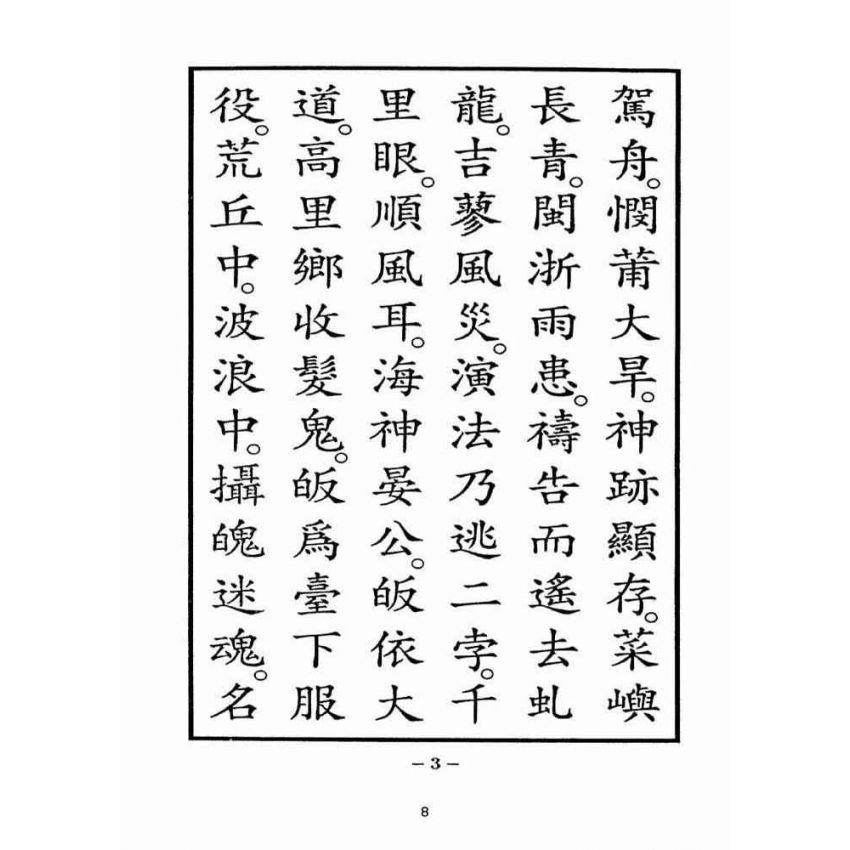 駕舟。憫莆大旱。神跡顯存。菜嶼
長青。閩浙雨患。禱告而遙去虬
龍。吉蓼風災。演法乃逃二孛。千
里眼。順風耳。海神晏公。皈依大
道。高里鄉收髮鬼。皈爲臺下服
役。荒丘中。波浪中。攝魄迷魂。名
－3－
8